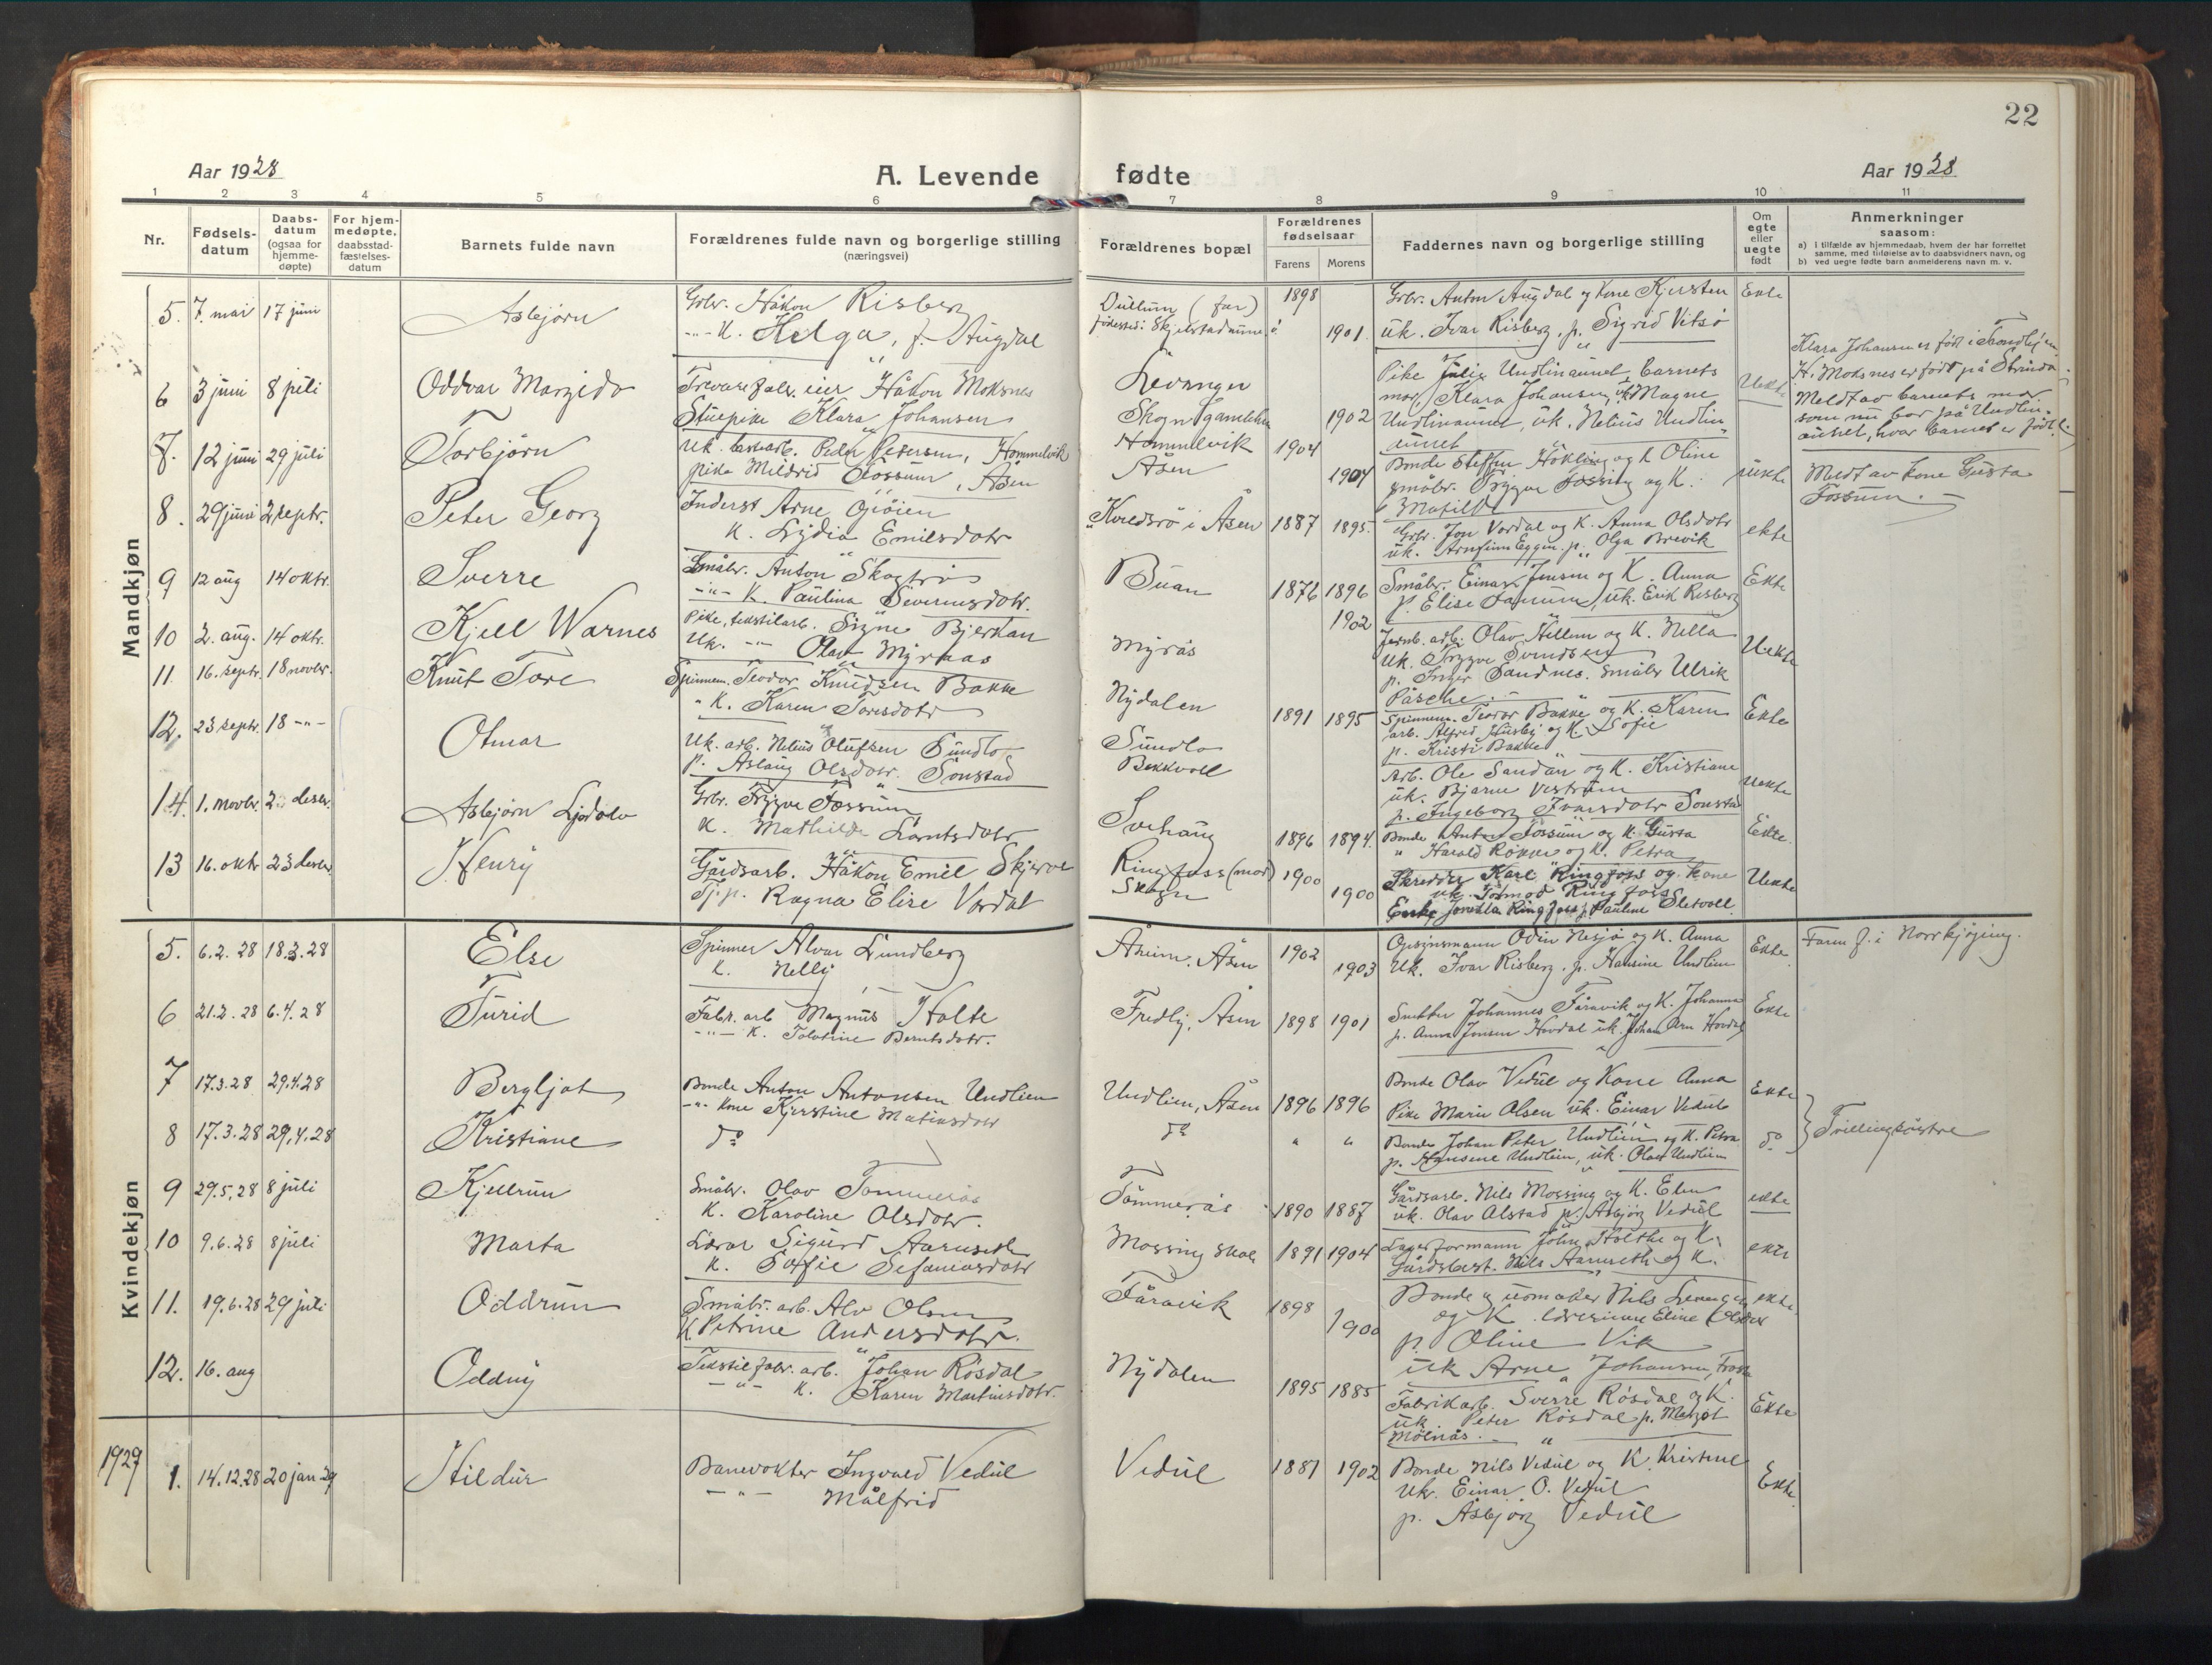 22
Aar 1928
A. Levende fødte
Aar 1928
1 2 3 4 5 6 7 8 9 10 11
Nr.
Fødselsdatum
Daabsdatum (ogsaa for hjemmedøpte)
For hjemmedøpte, daabsstadfæstelsesdatum
Barnets fulde navn
Forældrenes fulde navn og borgerlige stilling (næringsvei)
Forældrenes bopæl
Forældrenes fødselsaar
Farens Morens
Faddernes navn og borgerlige stilling
Om egte eller uegte født
Anmerkninger saasom:
a) i tilfælde av hjemmedaab, hvem der har forrettet samme, med tilføielse av to daabsvidners navn, og
b) ved uegte fødte barn anmelderens navn m. v.
Mandkjøn
5. 7. mai 17 juni Asbjørn
Grbr. Håkon Risberg
-"- K. Helga, f. Augdal
Dullum (far)
1898 1901
Grbr. Anton Augdal og kone Kjersten
uk. Ivar Risberg, p. Sigrid Vitsø
Ekte
6 3 juni 8 juli Oddvar Margido
Trevarefabr. eier Håkon Moksnes
Stuepike Klara Johansen
Levanger
Skogn
1902
Pike Julie Undlinaunet, barnets
mor, Klara Johansen, uk. Magne
Undlinaunet, uk. Nelius Undlin-
aunet
Uekte
Klara Johansen er født i Trondhjem
H. Moksnes er født på Strinda
Meldt av barnets mor
som nu bor på Undlin-
aunet, hvor barnet er født.
7. 12 juni 29 juli Torbjørn
Uk. Peder Petersen, Hommelvik
pike Mildrid Fossum, Åsen
Hommelvik
Åsen
1904 1904
Bonde Steffen Høkling og K Oline
småbr. Trygve Fossing og K.
Matilde
uekte
Meldt av kone Gusta
Fossum.
8. 29 juni 2 septr. Peter Georg
Inderst Arne Gjøien
K. Lydia Emilsdotr
Kvelsrø i Åsen 1887 1895.
Grbr. Jon Vordal og K. Anna Olsdotr
uk. Arnfinn Eggen. p. Olga Brevik
ekte
9 12 aug 14 oktr. Sverre
Småbr. Anton Skogtrø
-"- K. Paulina Severinsdotr.
Buan 1876 1896
Småbr. Einar Jensen og K. Anna
p. Elise Fanum, uk. Erik Risberg
Ekte
10 2. aug. 14 oktr. Kjell Warnes
Pike, tekstilarb. Signe Bjerkan
Uk. -"- Olav Myraas
Myrås
1902
Jernb. arb. Olav Hellem og K. Nella
uk. Trygve Svendsen
p. Inger Sandnes. Småbr Ulrik
Påsche.
Uekte
11 16. septr. 18 novbr. Knut Tore
Spinnem. Teodor Knudsen Bakke
" K. Karen Toresdotr
Nydalen 1891 1895
Spinnem. Teodor Bakke og K. Karen
arb. Alfred Husby og K. Sofie
p. Kristi Bakke
Ekte
12. 23 septr. 18 -"- Otmar
Uk. arb. Nelius Olufsen Sundlo
p. Aslaug Olsdotr. Sonstad
Sundlo
Bekkvoll
Arb. Ole Sandån og K. Kristiane
uk. Bjarne Vestrum
p. Ingeborg Ivarsdotr Sonstad
Uekte
14. 1. novbr. Asbjørn Ljodolv
Grbr. Trygve Fossum
K. Mathilde Larntsdotr
Svehaug 1896 1894.
Bonde Anton Fossum og K. Gusta
" Harald Røkke og K. Petra
Ekte.
13 16. oktr 23 desbr. Henry
Gårdsarb. Håkon Emil Skjerve
Tj.p. Ragna Elise Vordal
Ringfoss (mor)
Skogn
1900 1900
Skredder Karl Ringfoss og kone
uk. Tormod Ringfoss
Enke Jonetta Ringfoss p. Pauline Sletvoll.
Uekte
Kvindekjøn
5. 6.2.28 18.3.28 Else
Spinner Alvar Lundberg
K. Nelly
Åsum, Åsen 1902 1903
Opsynsmann Odin Nesjø og K. Anna
Uk. Ivar Risberg, p. Hansine Undlien
Ekte
Faren f. i Norrkjøping.
6 21.2.28 6.4.28 Turid
Fabr. arb Magnus Holte
-"- K. Tolotine Berntsdotr.
Fredly, Åsen 1898 1901
Snekker Johannes Fåravik og K. Johanna
p. Anna Jensen Hovdal uk. Johan Arn Hovdal
Ekte
7 17.3.28 29.4.28 Bergljot
Bonde Anton Antonsen Undlien
-"- Kone Kjerstine Matiasdotr
Undlien, Åsen 1896 1896
Bonde Olav Vedul og Kone Anna
Pike Marie Olsen uk. Einar Vedul
Ekte
8 17.3.28 29.4.28 Kristiane
do
do " "
Bonde Johan Peter Undlien og K. Petra
p. Hansene Undlien, uk. Olav Undlien
do
Tvillingsøstre
9 29.5.28 8 juli Kjellrun
Småbr. Olav Tømmerås
K. Karoline Olsdotr.
Tømmerås 1890 1887
Gårdsarb. Nils Mossing og K. Elen
uk. Olav Alstad p. Asbjørg Vedul
ekte
10 9.6.28 8 juli Marta
Lærer Sigurd Aarnseth
K. Sofie Sefaniasdotr
Mossing skole 1891 1904
Lagerformann John Holthe og K.
Gårdsbest. Nils Aarnseth og K.
ekte
11. 19.6.28 29 juli Oddrun
Småbr. arb. Alv Olsen
K. Petrine Andersdotr.
Fåravik 1898 1900
Bonde og uomaker Nils Levangen
og K. lærerinne Eline
p. Oline Vik
uk Arne Johansen, Frosta
ekte.
12. 16. aug Oddny
Tekstilfabr. arb. Johan Røsdal
-"- K. Karen Martinsdotr.
Nydalen 1895 1885
Fabrikarb. Sverre Røsdal og K.
uk. Peter Røsdal p. Margot
Mølnås.
Ekte
1929
1. 14.12.28 20 jan 29 Hildur
Banevokter Ingvald Vedul
-"- Målfrid
Vedul 1887 1902
Bonde Nils Vedul og K. Kristine
Uk. Einar O. Vedul
p. Åsbjørg Vedul
Ekte.